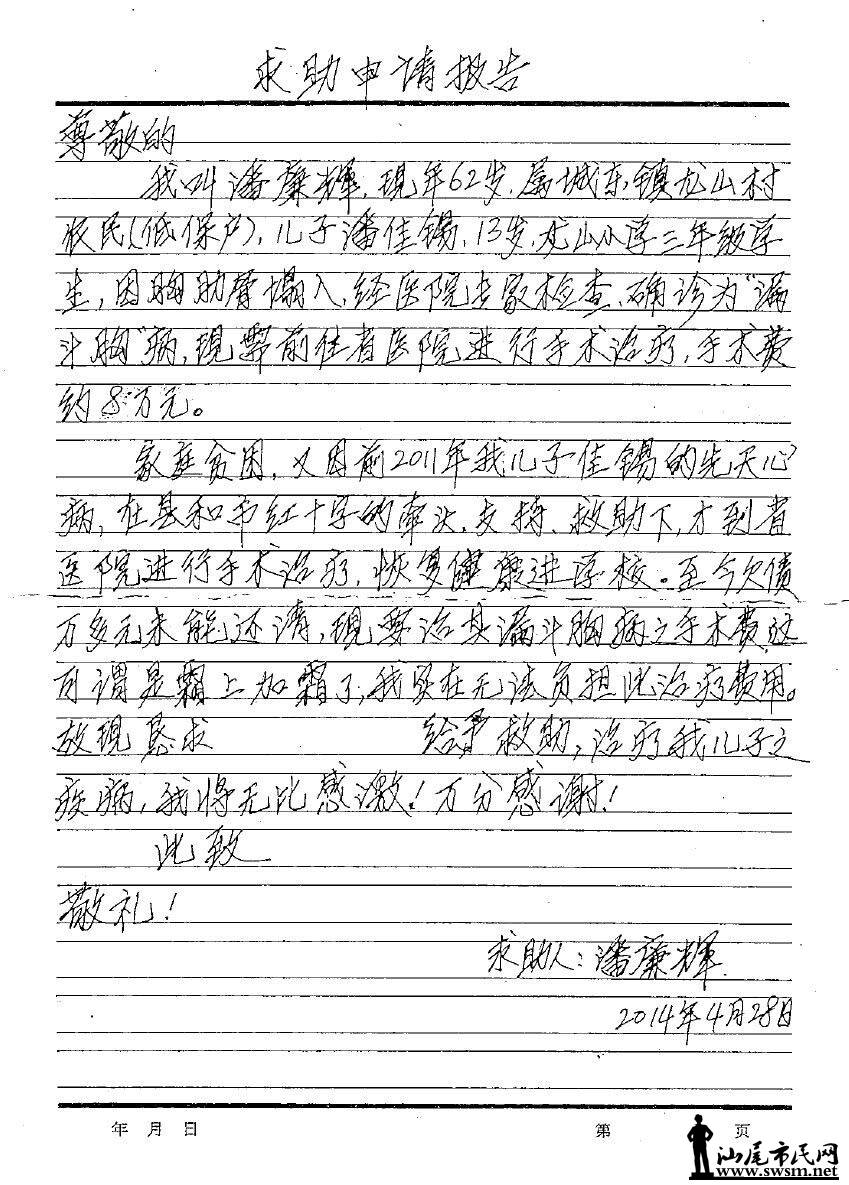 求助申请报告
尊敬的
我叫潘廉輝,現年62岁,属城东镇龙山村
农民(低保户),儿子潘佳锡,13岁,龙山小学三年级学
生,因胸肋骨塌入,经医院专家检查,确诊为“漏
斗胸”病,現要前往省医院进行手术治疗,手术费
约8万元。
家庭贫困,又因前2011年我儿子佳锡的先天心
病,在县和市红十字的牵头、支持、救助下,才到省
医院进行手术治疗,恢复健康进学校。至今欠债
万多元未能还清,現要治其漏斗胸病之手术费,这
可谓是霜上加霜了,我实在无法负担此治疗费用。
故現恳求 给予救助,治疗我儿子之
疾病,我将无比感激!万分感谢!
此致
敬礼!
求助人:潘廉輝.
2014年4月28日
年 月 日 第 页
汕尾市民网
www.swsm.net